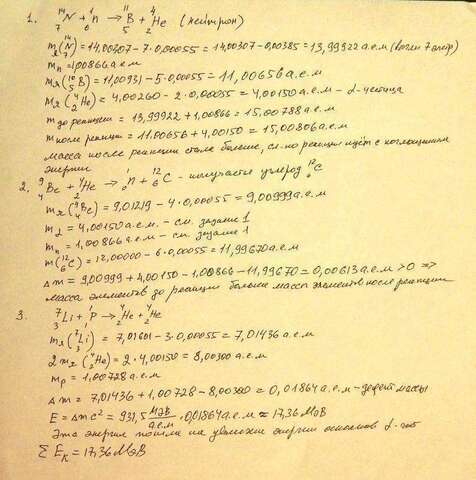 1. ¹⁴₇N + ¹₀n → ¹¹₅B + ⁴₂He (нейтрон)
mя(¹⁴₇N) = 14,00307 - 7·0,00055 = 14,00307 - 0,00385 = 13,99922 а.е.м
mn = 1,00866 а.е.м
mя(¹⁰₅B) = 11,00931 - 5·0,00055 = 11,00656 а.е.м
mя(⁴₂He) = 4,00260 - 2·0,00055 = 4,00150 а.е.м - α-частица
m до реакции = 13,99922 + 1,00866 = 15,00788 а.е.м
m после реакции = 11,00656 + 4,00150 = 15,00806 а.е.м
масса после реакции стала больше, сл-но реакция идёт с поглощением
энергии
2. ⁹₄Be + ⁴₂He → ¹₀n + ¹²₆C - получается углерод ¹²₆C
mя(⁹₄Be) = 9,01219 - 4·0,00055 = 9,00999 а.е.м
mα = 4,00150 а.е.м - см. задание 1
mn = 1,00866 а.е.м - см. задание 1
m(¹²₆C) = 12,00000 - 6·0,00055 = 11,99670 а.е.м
Δm = 9,00999 + 4,00150 - 1,00866 - 11,99670 = 0,00613 а.е.м > 0 =>
масса элементов до реакции больше массы элементов после реакции
3. ⁷₃Li + ¹₁P → ⁴₂He + ⁴₂He
mя(⁷₃Li) = 7,01601 - 3·0,00055 = 7,01436 а.е.м
2mя(⁴₂He) = 2·4,00150 = 8,00300 а.е.м
mp = 1,00728 а.е.м
Δm = 7,01436 + 1,00728 - 8,00300 = 0,01864 а.е.м - дефект массы
E = Δmc² = 931,5 МэВ/а.е.м · 0,01864 а.е.м ≈ 17,36 МэВ
Эта энергия пошла на увелич энергии α-
ΣEк = 17,36 МэВ